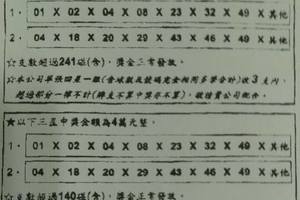 1. 01 X 02 X 04 X 08 X 23 X 32 X 49 X 其他
2. 04 X 18 X 20 X 29 X 43 X 46 X 49 X 其他
☆支數超過241碰(含),獎金三常發放。
☆本公司單張四星一組(含
完全相同多單合計)收3支內
超過部分一律不計(
不算),敬請貴公司配合。
★以下三星中獎金額為4萬元整。
1. 01 X 02 X 04 X 08 X 23 X 32 X 49 X 其他
2. 04 X 18 X 20 X 29 X 43 X 46 X 49 X 其他
☆支數超過140碰(含),獎金正常發放。